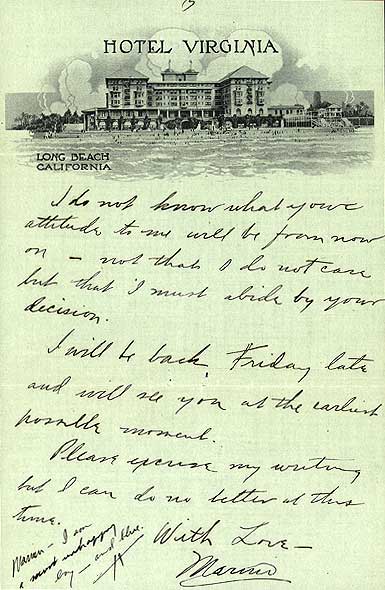 HOTEL VIRGINIA
LONG BEACH
CALIFORNIA
I do not know what your
attitude to me will be from now
on – not that I do not care
but that I must abide by your
decision.
I will be back, Friday late
and will see you at the earliest
possible moment.
Please excuse my writing
but I can do no better at this
time.
With Love –
I am
a most unhappy
boy – and blue.